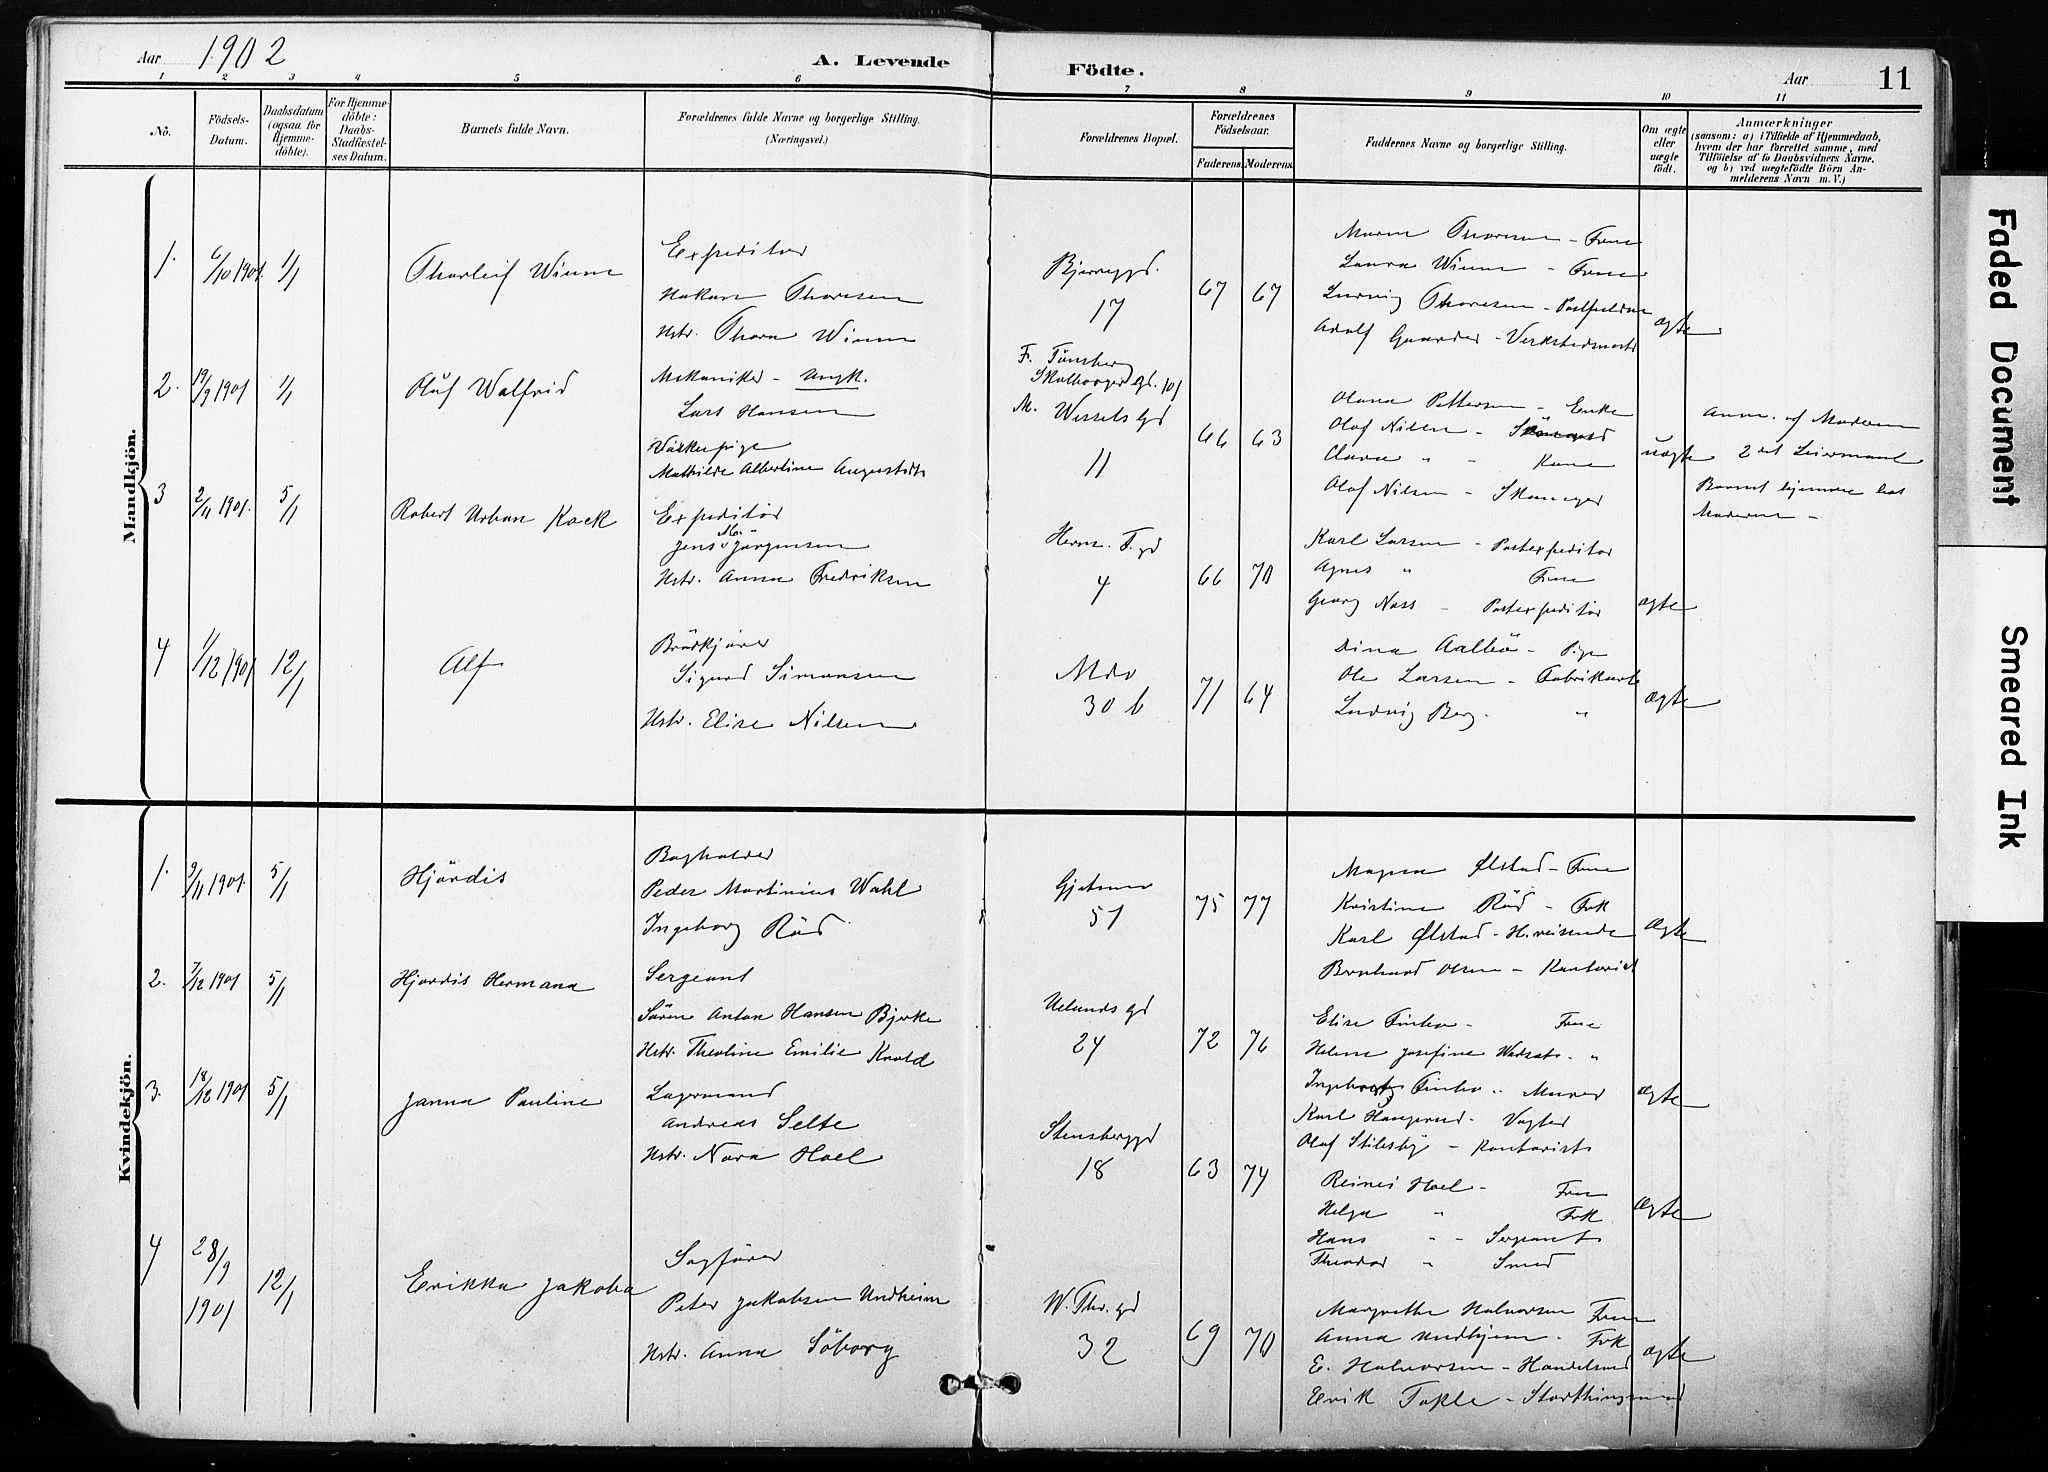 Aar 1902 A. Levende Födte. Aar 11
1 2 3 4 5 6 7 8 9 10 11
No.
Födsels-Datum.
Daabsdatum (ogsaa for Hjemme-döbte).
For Hjemme-döbte: Daabs-Stadfæstel-ses Datum.
Barnets fulde Navn.
Forældrenes fulde Navne og borgerlige Stilling.
(Næringsvei.)
Forældrenes Bopæl.
Forældrenes Födselsaar.
Faderens. Moderens.
Faddernes Navne og borgerlige Stilling.
Om ægte eller uægte födt.
Anmærkninger
(saasom: a) i Tilfælde af Hjemmedaab,
hvem der har forrettet samme, med
Tilföielse af to Daabsvidners Navne,
og b) ved uægtefödte Börn An-
melderens Navn m. V.)
Mandkjön.
1. 6/10 1901. 1/1 Thorleif Winne
Expeditør
Hakon Thoresen
Hstr. Thora Winne
17
67 67
Thoresen - Frue
Laura Winne - Frue
Ludvig Thoresen -
Adolf Gaarder -
ægte
2. 19/9 1901 1/1 Oluf Walfrid
Mekaniker - Ungk.
Lars Hansen
Mathilde Albertine
F. Tönsberg
101
M. Wessels gd
11
66 63
Olana Pettersen - Enke
Olaf Nilsen -
Clara " - Kone
Olaf Nilsen -
uægte
Anm. af Moderen
2 det Leiermaal
Barnet hos
Moderen -
3 2/11 1901. 5/1 Robert Urban Kock
Expeditör
Jens Jörgensen
Hstr. Anna Fredriksen
4
66 70
Karl Larsen - Postexpeditör
Agnes " Frue
Georg Nass - Postexpeditör
ægte
4 1/12 1901 12/1 Alf
Brödkjörer
Sigurd Simonsen
Hstr. Elise Nilsen
30 b
71 64
Dina Aalbö - Pige
Ole Larsen - Fabrikarb
Ludvig Berg. "
ægte
Kvindekjön.
1. 9/11 1901. 5/1 Hjördis
Bogholder
Peder Martinius Wahl
Ingeborg Röd
51
75 77
Magna Ølstad - Frue
Kristine Röd - Frk
Karl Ølstad - H.reisende
Bernhard Olsen - Kontorist
ægte
2. 7/12 1901 5/1 Hjördis Hermana
Sergeant
Sören Anton Hansen Bjerke
Hstr. Theoline Emilie
Uelands gd
24
72 76
Elise - Frue
Helene Josefine "
Ingeborg - Murer
Karl - Vogter
Olaf - Kontorist
ægte
3. 18/12 1901 5/1 Janna Pauline
Lagermand
Andreas Selte
Hstr. Nora Hoel
Stensberggd
18
63 74
Hoel - Frue
Helga " Frk
Hans " - Sergeant
Theodor " Smed
ægte
4 28/9 1901 12/1 Erikka Jakoba
Sagförer
Peter Jakobsen Undheim
Hstr. Anna Söborg
W. Thr. gd
32
69 70
Margrethe Halvorsen Frue
Anna Undhjem - Frk
E. Halvorsen - Handelsmd
Erik Tokle - Storthingsmand
ægte
Faded Document
Smeared Ink